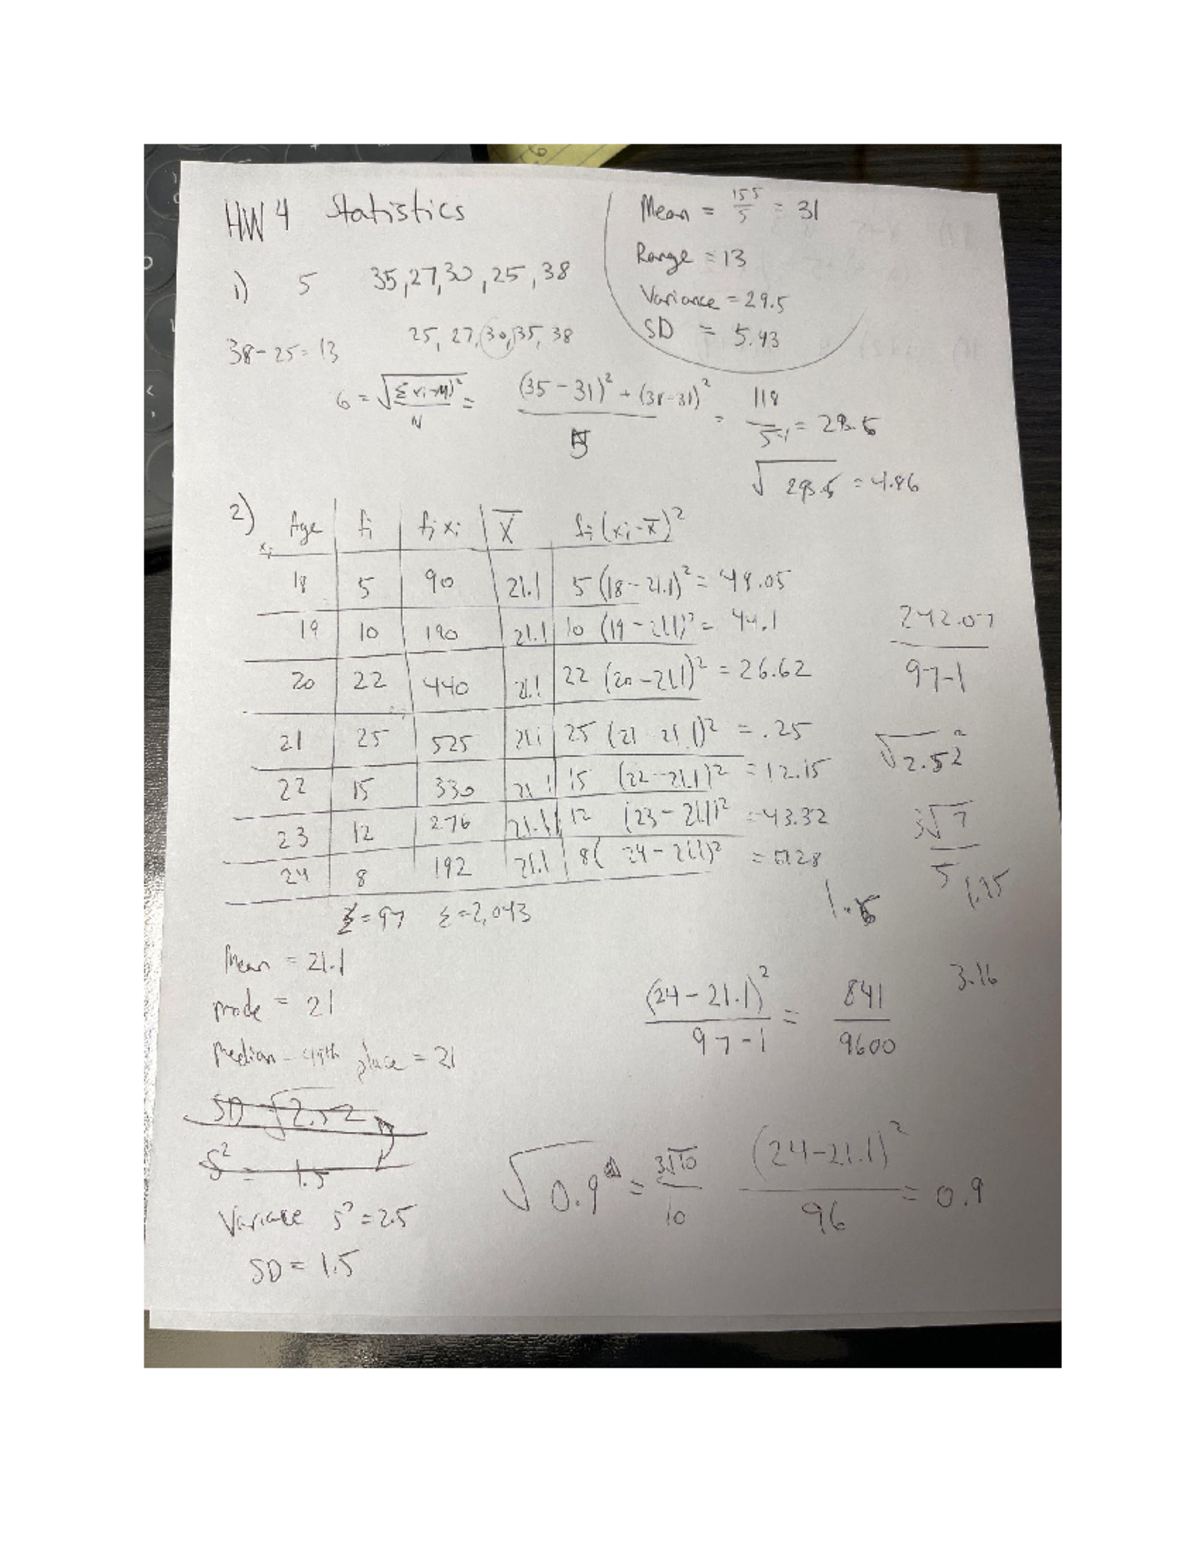 HW 4 Statistics
Mean = 155/5 = 31
Range = 13
Variance = 29.5
SD = 5.43
1) 5 35,27,30,25,38
38-25=13 25, 27, 30, 35, 38
6 = √(Σxi-M)²/N = (35-31)² + (38-31)²/5 = 118/5-1 = 29.5
√29.5 = 4.86
2) Age xi fi fi xi X̄ fi (xi-x̄)²
18 5 90 21.1 5 (18-21.1)² = 48.05
19 10 190 21.1 10 (19-21.1)² = 44.1
20 22 440 21.1 22 (20-21.1)² = 26.62
21 25 525 21.1 25 (21-21.1)² = .25
22 15 330 21.1 15 (22-21.1)² = 12.15
23 12 276 21.1 12 (23-21.1)² = 43.32
24 8 192 21.1 8( 24-21.1)² = 67.28
Σ=97 Σ=2,043
242.07
97-1
√2.52²
3√7
5 1.75
1.5
Mean = 21.1
mode = 21
Median - 49th place = 21
SD √2.52
S² = 1.5
Variance s²=2.5
SD = 1.5
(24-21.1)²/97-1 = 841/9600
3.16
√0.9 = 3√10/10
(24-21.1)²/96 = 0.9